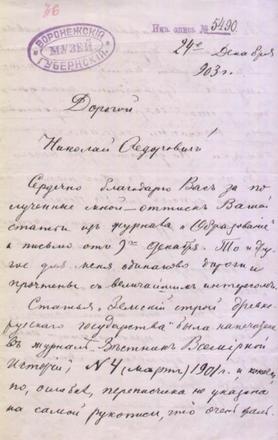 76
ВОРОНЕЖСКІЙ
МУЗЕЙ
ГУБЕРНСКІЙ
Инв. опись № 5490.
24го Декабря
903 г.
Дорогой
Николай Ѳедоровичъ!
Сердечно благодарю Васъ за по-
лученные мной – оттискъ Вашей
статьи изъ журнала „Образованіе"
и письмо отъ 7го Декабря. То и дру-
гое для меня одинаково дороги и
прочтены съ величайшимъ интересомъ.
Статья „Земскій строй древне-
русскаго государства" была напечатана
въ журналѣ – Вѣстникъ Всемірной
Исторіи, № 4 (мартъ) 1901 г. и
по ошибкѣ, переписчика не указано
на самой рукописи, что очень